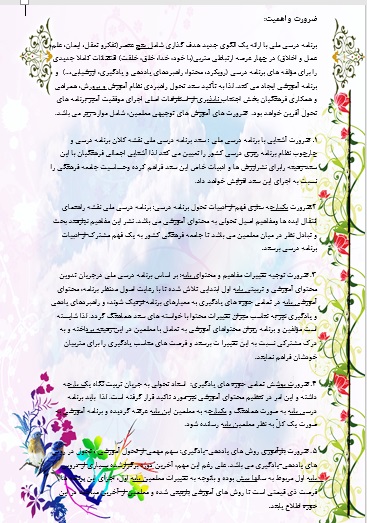 ضرورت و اهمیت:
برنامه درسی ملی با ارائه یک الگوی جدید هدف گذاری شامل پنج عنصر(تفکرو تعقل، ایمان، علم،
عمل و اخلاق) در چهار عرصه ارتباطی متربی(با خود، خدا، خلق، خلقت) اقتضائات کاملا جدیدی
را برای مؤلفه های برنامه درسی (رویکرد، محتوا، راهبردهای یاددهی و یادگیری، ارزشیابی،...) و
برنامه آموزشی ایجاد می کند. لذا به تأکید سند تحول راهبردی نظام آموزش و پرورش، همراهی
و همکاری فرهنگیان بخش اجتناب ناپذیری از اصلی اجرای موفقیت آمیز برنامه های
تحول آفرین خواهد بود. ضرورت های آموزش های توجیهی معلمین، شامل موارد زیر می باشد.
۱. ضرورت آشنایی با برنامه درسی ملی : سند برنامه درسی ملی نقشه کلان برنامه درسی و
چارچوب نظام برنامه ریزی درسی کشور را تعیین می کند لذا آشنایی اجمالی فرهنگیان با این
سند زمینه را برای نشر ارزش ها و ادبیات خاص این سند فراهم کرده و حساسیت جامعه فرهنگی را
نسبت به اجرای این سند افزایش خواهد داد.
۲. ضرورت یکپارچه سازی فهم از ادبیات تحول برنامه درسی: برنامه درسی ملی نقشه راهنمای
انتقال ایده ها و مفاهیم اصیل تحولی به محتوای آموزشی می باشد. نشر این مفاهیم نیازمند بحث
و تبادل نظر در میان معلمین می باشد تا جامعه فرهنگی کشور به یک فهم مشترک از ادبیات
برنامه درسی برسد.
۳. ضرورت توجیه تغییرات مفاهیم و محتوای پایه: بر اساس برنامه درسی ملی در جریان تدوین
محتوای آموزشی و تربیتی پایه اول ابتدایی تلاش شده تا با رعایت اصول مدنظر برنامه، محتوای
آموزشی پایه در تمامی حوزه های یادگیری به معیارهای برنامه نزدیک شوند، و راهبردهای یاددهی
و یادگیری نیز به تناسب میزان تغییرات محتوا با خواسته های سند هماهنگ گردد. لذا شایسته
است مؤلفین و برنامه ریزان محتواهای آموزشی به تعامل با معلمین در این زمینه پرداخته و به
درک مشترکی نسبت به این تغییرات برسند و فرصت های مناسب یادگیری را برای متربیان
خودشان فراهم نمایند.
۴. ضرورت پوشش تمامی حوزه های یادگیری: اسناد تحولی به جریان تربیت نگاه یکپارچه
داشته و این امر در تنظیم محتوای آموزشی نیز مورد تاکید قرار گرفته است. لذا باید برنامه
درسی پایه به صورت هماهنگ و یکپارچه به معلمین این پایه عرضه گردیده و برنامه آموزشی به
صورت یک کل به نظر معلمین پایه رسانده شود.
۵. ضرورت بازآموزی روش های یاددهی-یادگیری: سهم مهمی از تحول آموزشی، تحول در روش
های یاددهی-یادگیری می باشد. علی رغم این مهم، آخرین دوره برگزار شده بسیاری از دروس
پایه اول مربوط به سالها پیش بوده و با توجه به تغییرات معلمین پایه اول، اجرای این برنامه ها
فرصت ذی قیمتی است تا روش های آموزشی بازبینی شده و معلمین از آخرین در این
حوزه اطلاع یابند.